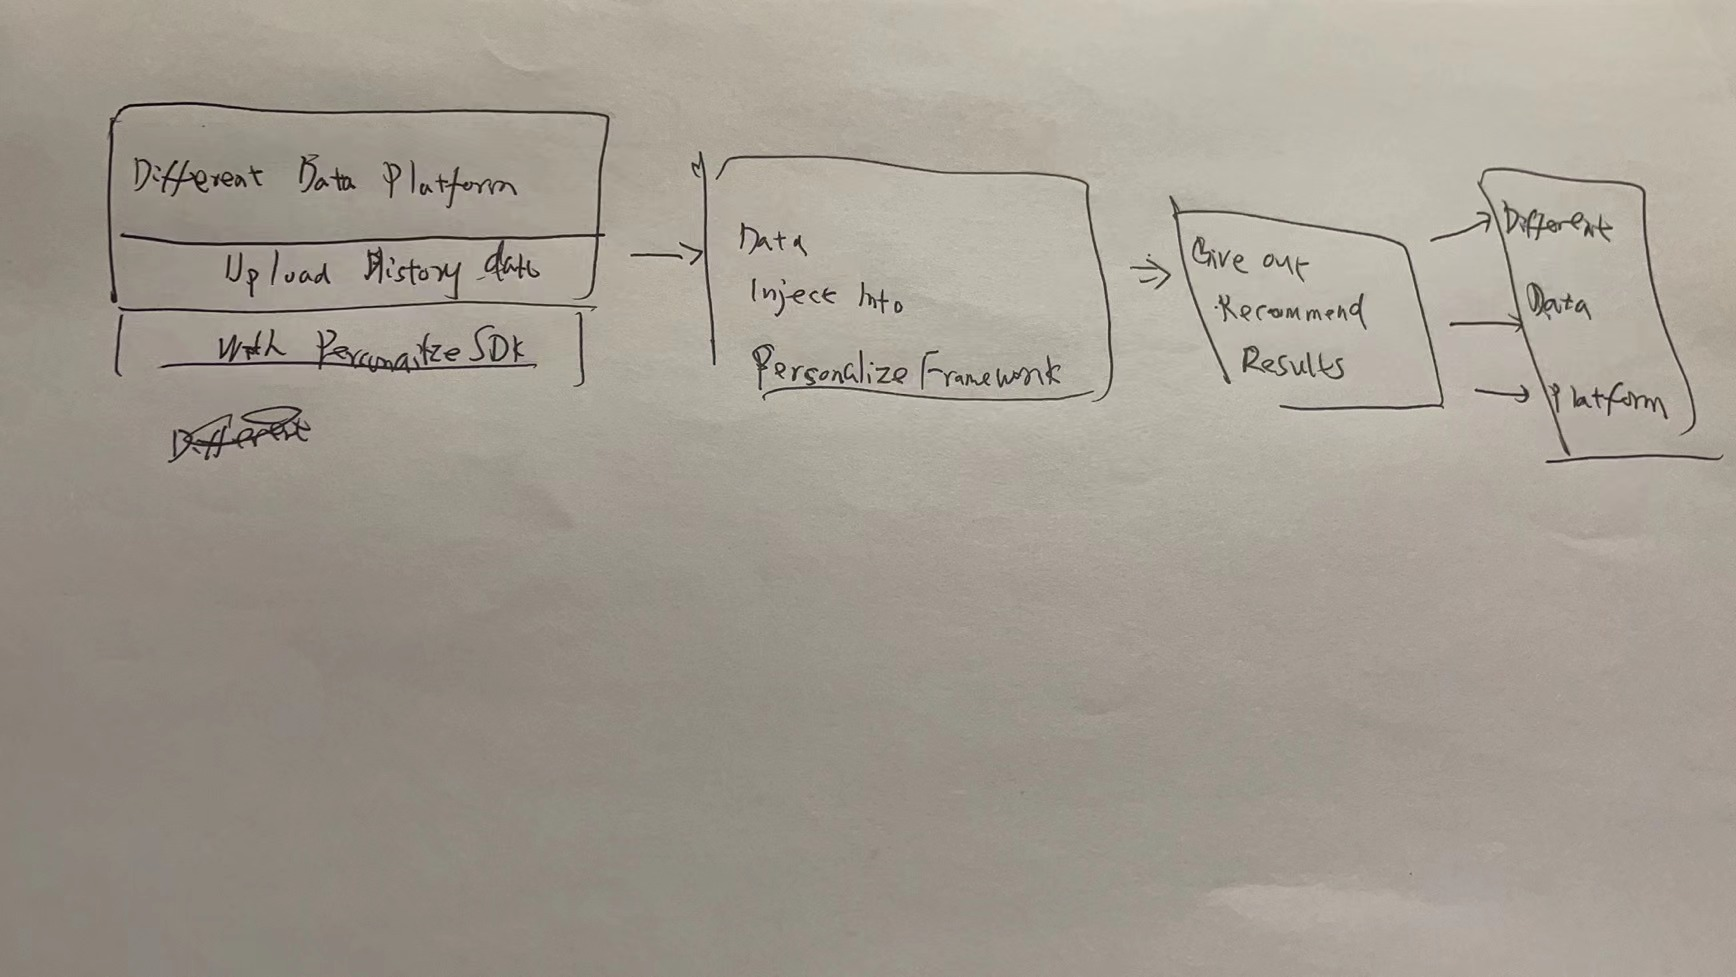 Different Data Platform
Upload History data
With Personalize SDK
Different
Data
Inject Into
Personalize Framework
Give out
Recommend
Results
Different
Data
Platform